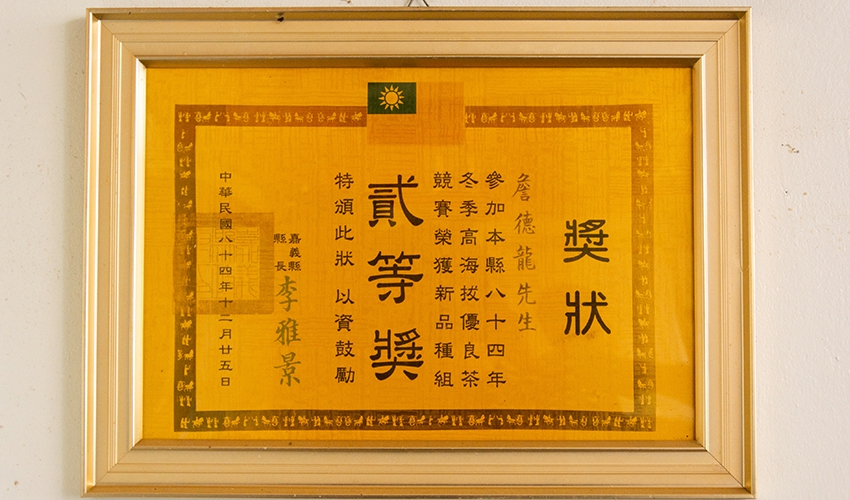 獎狀
詹德龍先生
參加本縣八十四年
冬季高海拔優良茶
競賽榮獲新品種組
貳等獎
特頒此狀 以資鼓勵
嘉義縣
縣長
李雅景
中華民國八十四年十二月廿五日